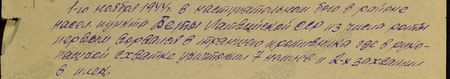 1го ноября 1944г. в наступательном бою в районе
насел. пункта Берты Латвийской ССР из числа роты
первым ворвался в траншею противника где в руко-
пашной схватке уничтожил 7 немцев и 2-х захватил
в плен.